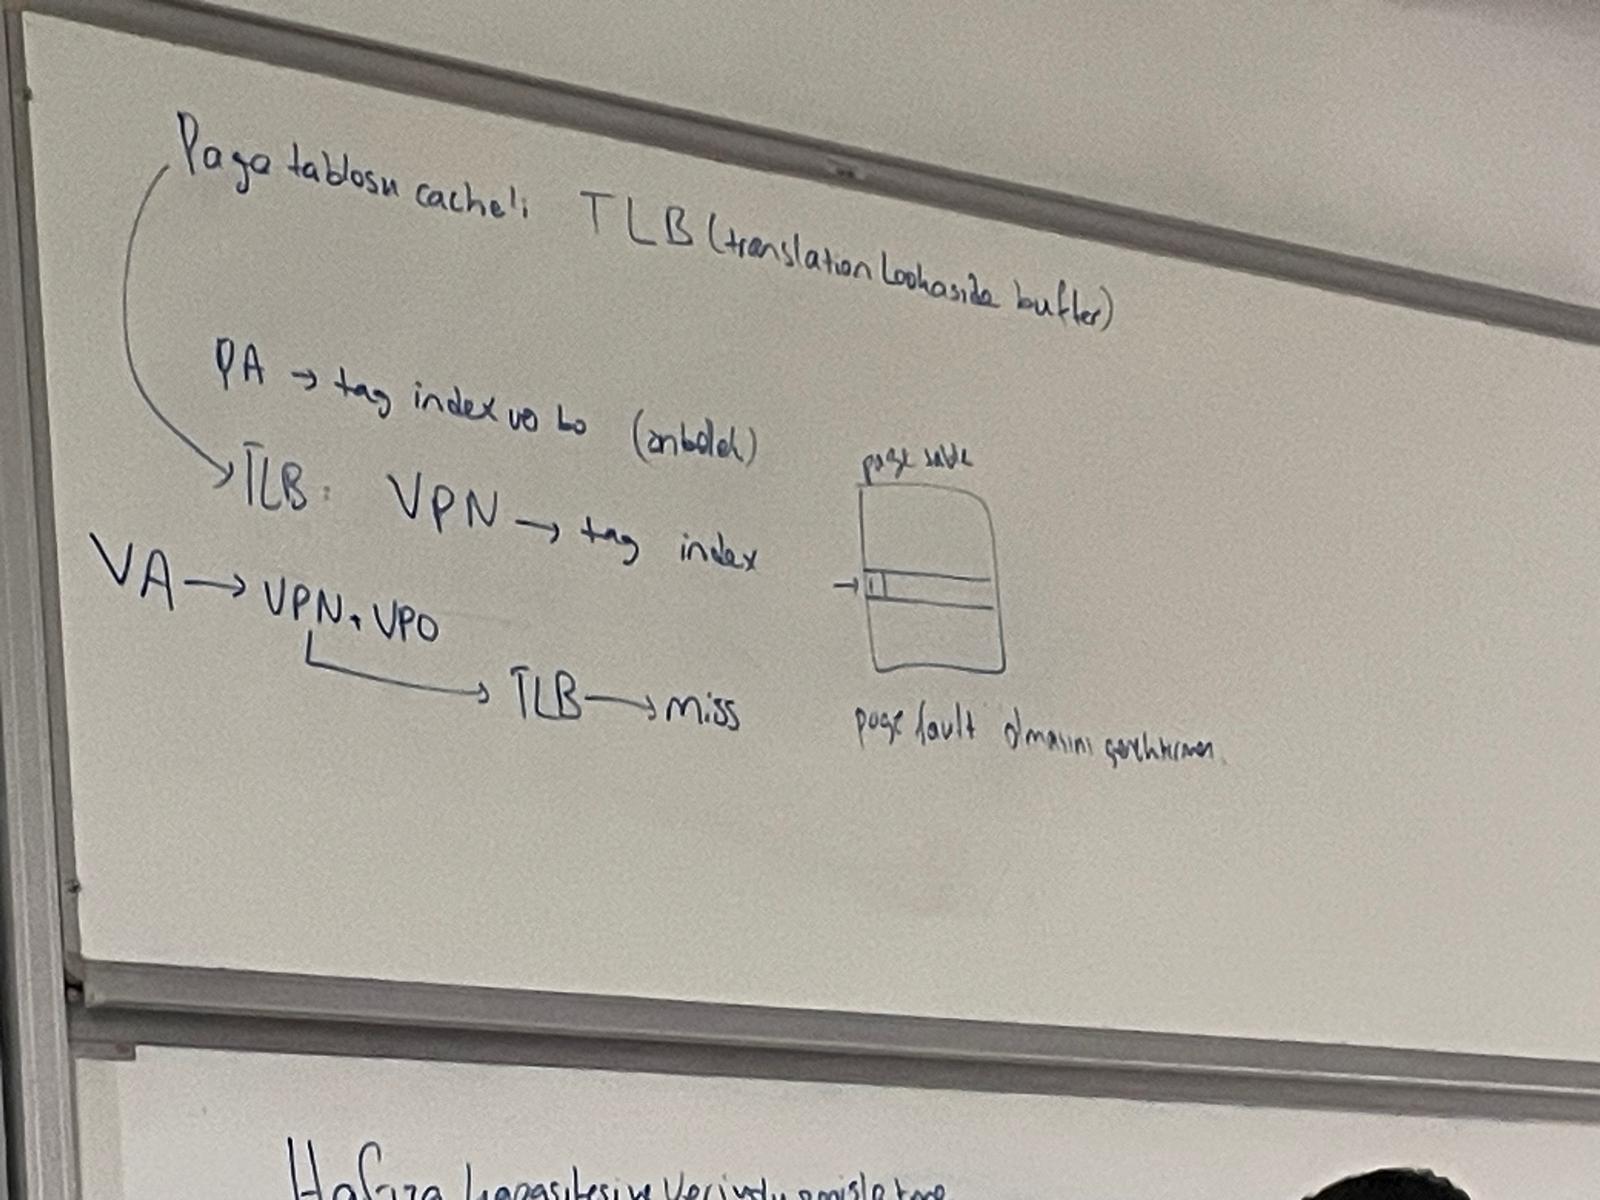 Page tablosu cache'i TLB (translation Lookaside buffer)
PA → tag index ve bo (önbellek)
TLB: VPN → tag index
page table
VA → VPN, VPO
TLB → miss
page fault olmasını gerektirmez.
Hafıza kapasitesine